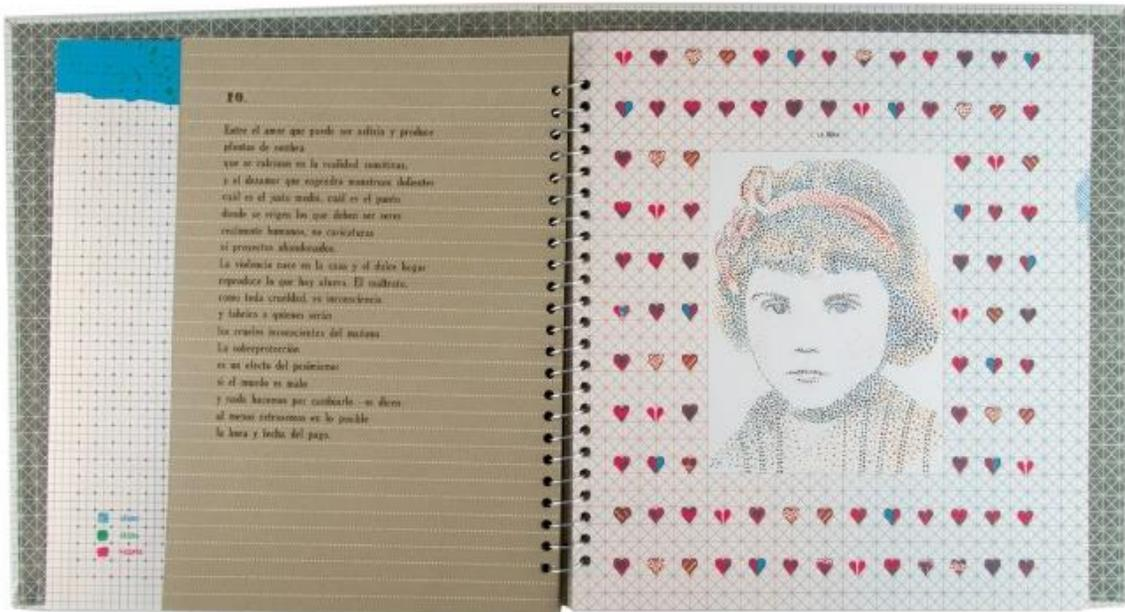 10.
Entre el amor que puede ser asfixia y produce
plantas de sombra
que se calcinan en la realidad
y el desamor que engendra monstruos dolientes
cuál es el justo medio, cuál es el punto
donde se erigen los que deben ser seres
realmente humanos, no caricaturas
ni proyectos abandonados.
La violencia nace en la casa y el dulce hogar
reproduce lo que hay afuera. El maltrato,
como toda crueldad, es inconsciencia
y fabrica a quienes serán
los crueles inconscientes del mañana.
La sobreprotección
es un efecto del pesimismo:
si el mundo es malo
y nada hacemos por cambiarlo —se dicen
al menos retrasemos en lo posible
la hora y fecha del pago.